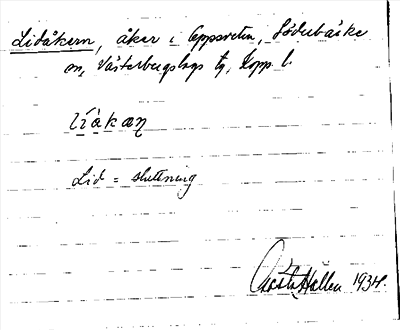 Lidåkern, åker i Uppsveten, Söderbärke
sn, Västerbergslags tg, Kopp. l.
líåkaꞃ
Lid = sluttning
Gösta Hallén 1934.